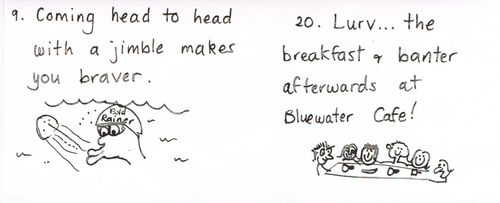 9. Coming head to head
with a jimble makes
you braver.
Bold
Rainer
20. Lurv... the
breakfast & banter
afterwards at
Bluewater Cafe!